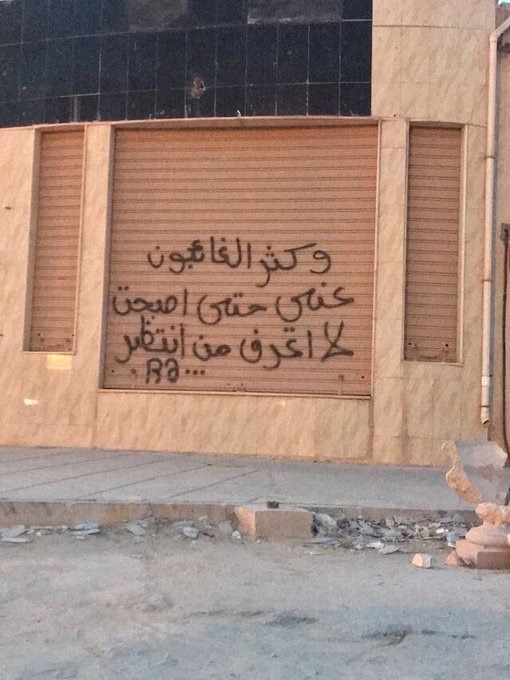 وكثر الغائبون
عني حتى اصبحت
لا اعرف من انتظر
...Ra